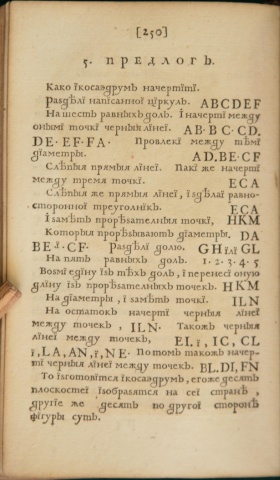 [250]
5. ПРЕДЛОГЪ.
Како ікосаэдрумъ начертїтї.
Раздѣлі напісанної ціркуль. ABCDEF
На шесть равныхъ доль. I начерті между
онымі точкі черныя лінеї. AB·BC·CD.
DE·EF·FA· Провлекі между тѣмі
діаметры. AD.BE·CF
Слѣпыя прямыя лінеї. Пакі же начерті
между тремя точкі. ECA
Слѣпыя же прямыя лінеї, ізделаї равно-
сторонної треуголнікъ. ECA
I замѣть прорѣзателныя точкі, HKM
Которыя прорѣзываютъ діаметры, DA
BE ї CF. Раздѣлі долю. GH ілі GL
На пять равныхъ доль. 1·2·3·4·5
Возмі едїну ізъ тѣхъ доль, і перенесі оную
длїну ізъ прорѣзателныхъ точекъ. HKM
На діаметры, і замѣть точкі. ILN
На остатокъ начерті черныя лінеї
между точекъ, ILN. Такожъ черныя
лінеї между точекъ, EI.ї, IC, CL
ї, LA, AN, ї, NE. Потомъ такожъ начер-
ті черныя лінеї между точекъ. BL.DI, FN
То ізготовїтся ікосаэдрумъ, егоже десять
плоскостеї ізобразятся на сеї странѣ,
другїе же десять по другої сторонѣ
фїгуры суть.